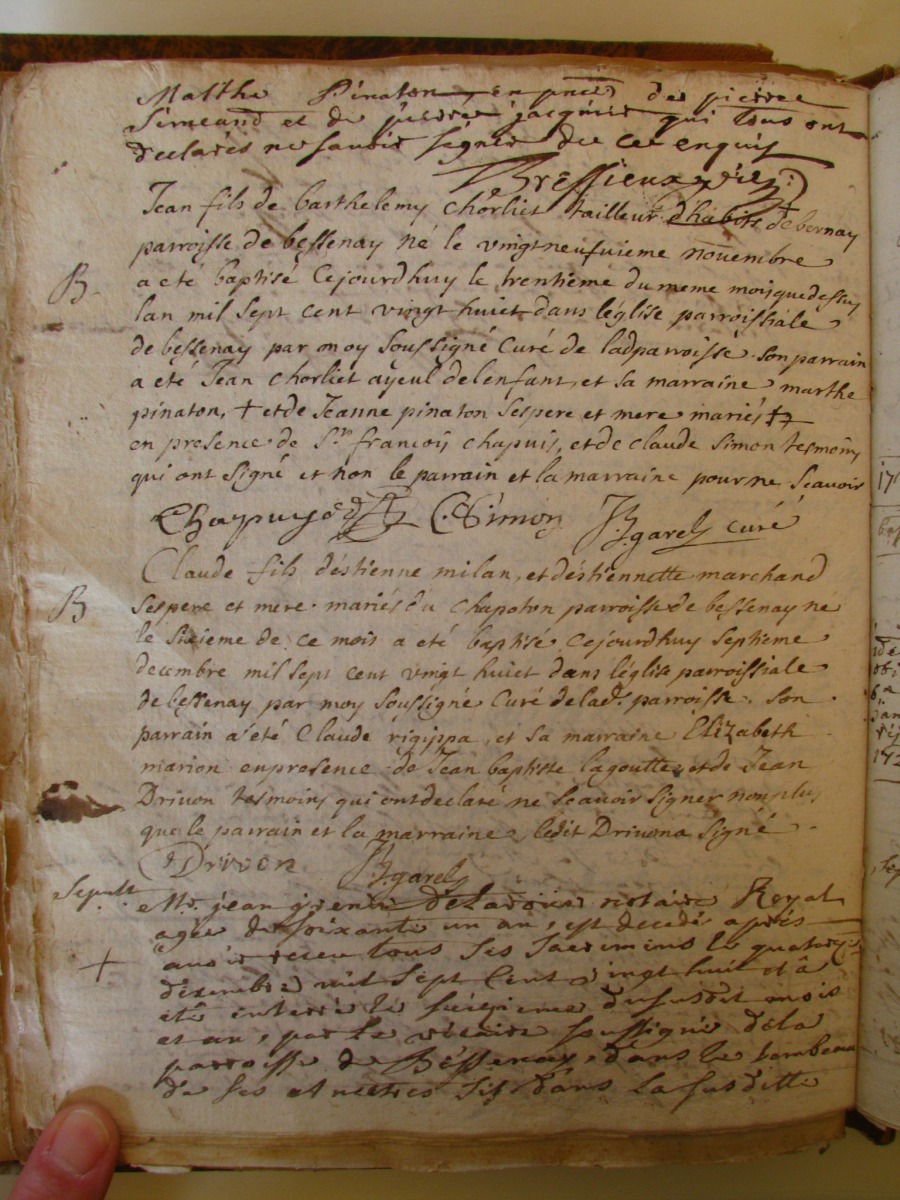 Malthe Pinaton, en pnce de pierre
Simeand et de pierre jacquier qui tous ont
declarés ne savoir signer de ce enquis
Bressieux vic:
Jean fils de barthelemy Chorliet tailleur d'habits de bernay
parroisse de bessenay né le vingtneufuieme nouembre
B. a eté baptisé Cejourdhuy le trentieme du meme mois que dessus
lan mil sept cent vingt huict dans léglise parroissiale
de bessenay par moy soussigné Curé de ladparroisse. son parrain
a eté Jean Chorliet ayeul de lenfant, et sa marraine marthe
pinaton, + et de Jeanne pinaton ses pere et mere mariés
en presence de Sr. françois Chapuis, et de Claude Simon tesmoins
qui ont signé et non le parrain et la marraine pour ne Scauoir
Chapuys C. Simon garel curé
Claude fils déstienne milan, et déstiennette marchand
B ses pere et mere mariés du Chapoton parroisse de bessenay né
le sixieme de ce mois a eté baptisé Cejourdhuy septieme
decembre mil sept cent vingt huict dans léglise parroissiale
de bessenay par moy soussigné Curé de lad. parroisse. son
parrain a été Claude rigippa, et sa marraine Elizabeth
marion en presence de Jean baptiste lagoutte et de Jean
Drivon tesmoins qui ont declaré ne Scauoir signer non plus
que le parrain et la marraine ledit Drivon a signé
Drivon garel
Sepult. Mr. jean grenier notaire Royal
agée de soixante un an, est decedé apprés
+ auoir receu tous ses sacrimens le quatorze
dexembre mil sept cent vingt huit et â
eté enterré le du susdit mois
et an, par le vicaire soussigné dela
parroisse de Bessenay, dans le tombeau
de ses dans la susditte